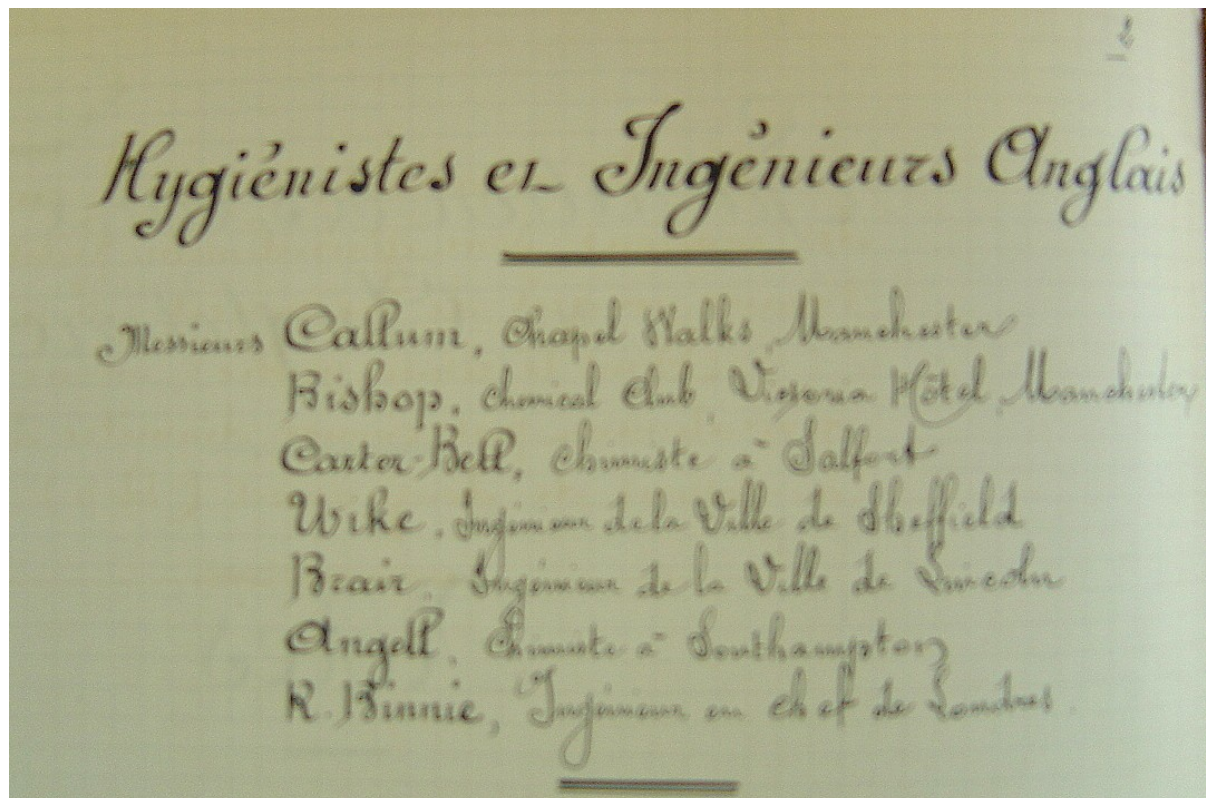 2
Hygiénistes et Ingénieurs Anglais
Messieurs Callum, Chapel Walks, Manchester
Bishop, chemical Club, Victoria Hôtel, Manchester
Carter-Bell, chimiste à Salfort
Wike, Ingénieur de la Ville de Sheffield
Brair, Ingénieur de la Ville de Lincoln
Angell, Chimiste à Southampton
R. Binnie, Ingénieur en chef de Londres.